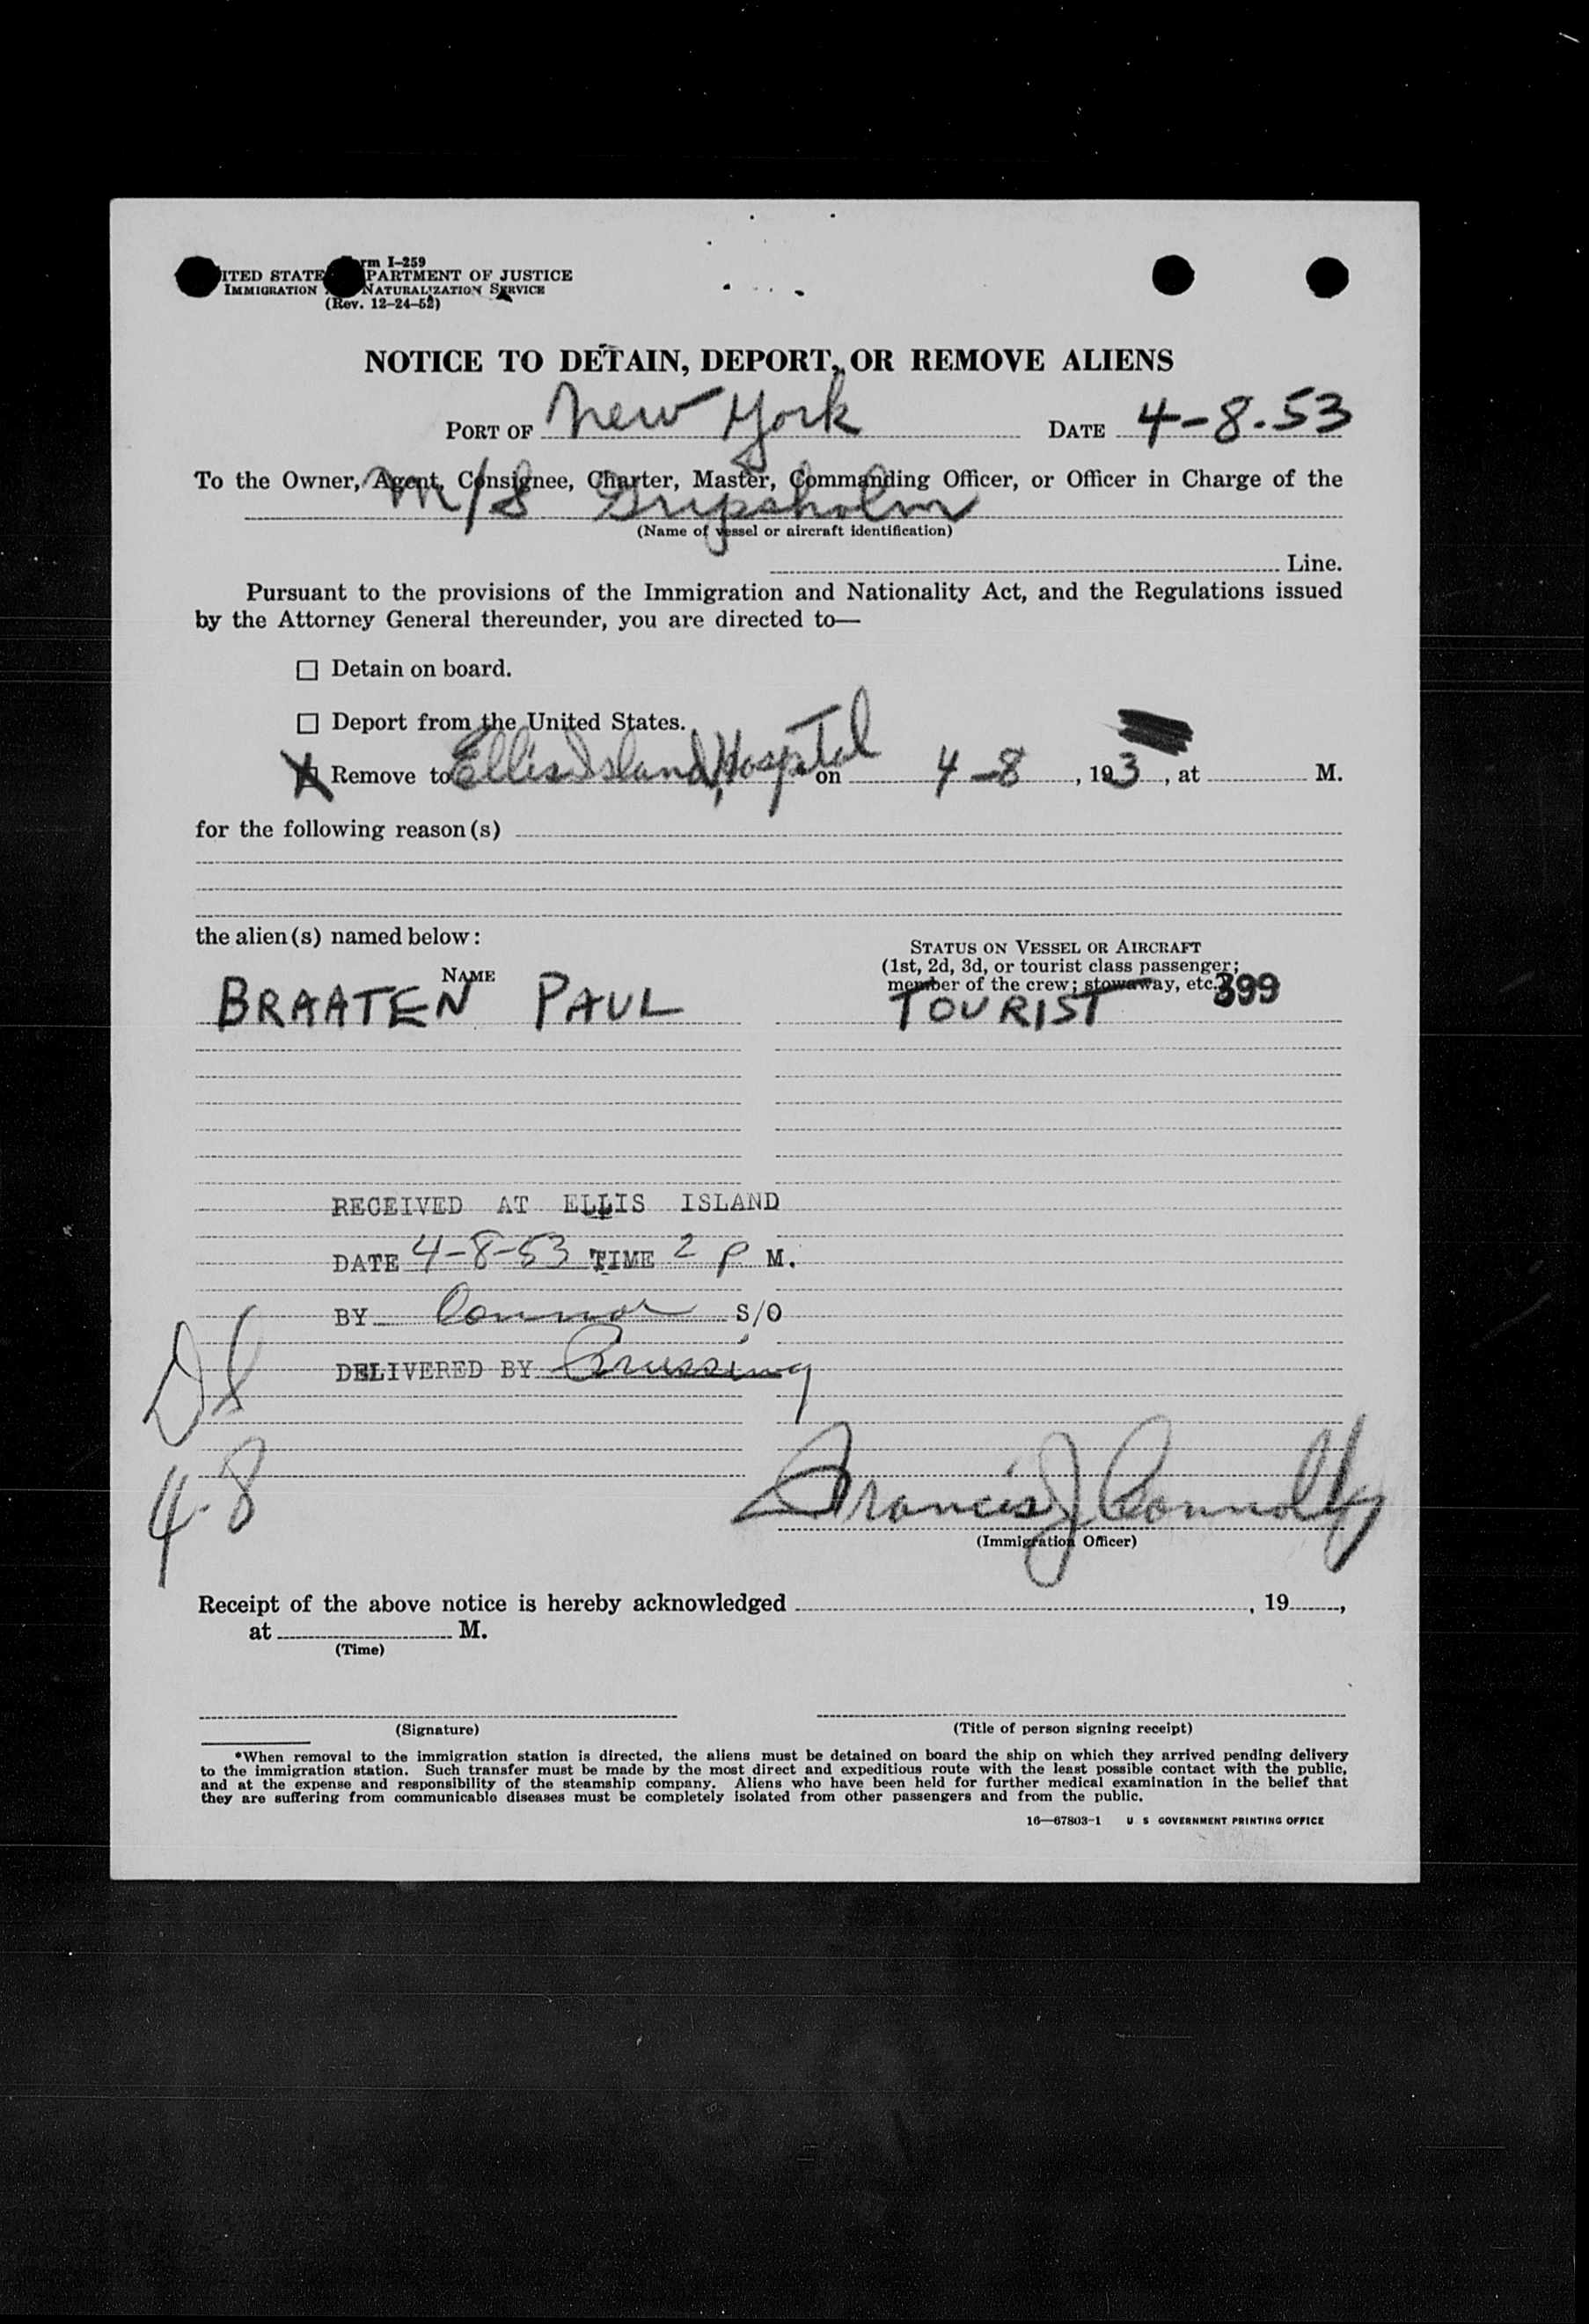 Form I-259
UNITED STATES DEPARTMENT OF JUSTICE
IMMIGRATION AND NATURALIZATION SERVICE
(Rev. 12-24-52)
NOTICE TO DETAIN, DEPORT, OR REMOVE ALIENS
PORT OF New York DATE 4-8-53
To the Owner, Agent, Consignee, Charter, Master, Commanding Officer, or Officer in Charge of the
M/S Gripsholm
(Name of vessel or aircraft identification)
Line.
Pursuant to the provisions of the Immigration and Nationality Act, and the Regulations issued
by the Attorney General thereunder, you are directed to—
☐ Detain on board.
☐ Deport from the United States.
☒ Remove to Ellis Island Hospital on 4-8, 193, at M.
for the following reason(s)
the alien(s) named below:
STATUS ON VESSEL OR AIRCRAFT
(1st, 2d, 3d, or tourist class passenger;
NAME
member of the crew; stowaway, etc.) 399
BRAATEN PAUL TOURIST
RECEIVED AT ELLIS ISLAND
DATE 4-8-53 TIME 2 P M.
BY Connor S/O
DELIVERED BY
4-8
Francis J Connolly
(Immigration Officer)
Receipt of the above notice is hereby acknowledged , 19 ,
at M.
(Time)
(Signature) (Title of person signing receipt)
*When removal to the immigration station is directed, the aliens must be detained on board the ship on which they arrived pending delivery
to the immigration station. Such transfer must be made by the most direct and expeditious route with the least possible contact with the public,
and at the expense and responsibility of the steamship company. Aliens who have been held for further medical examination in the belief that
they are suffering from communicable diseases must be completely isolated from other passengers and from the public.
16—67803-1 U S GOVERNMENT PRINTING OFFICE